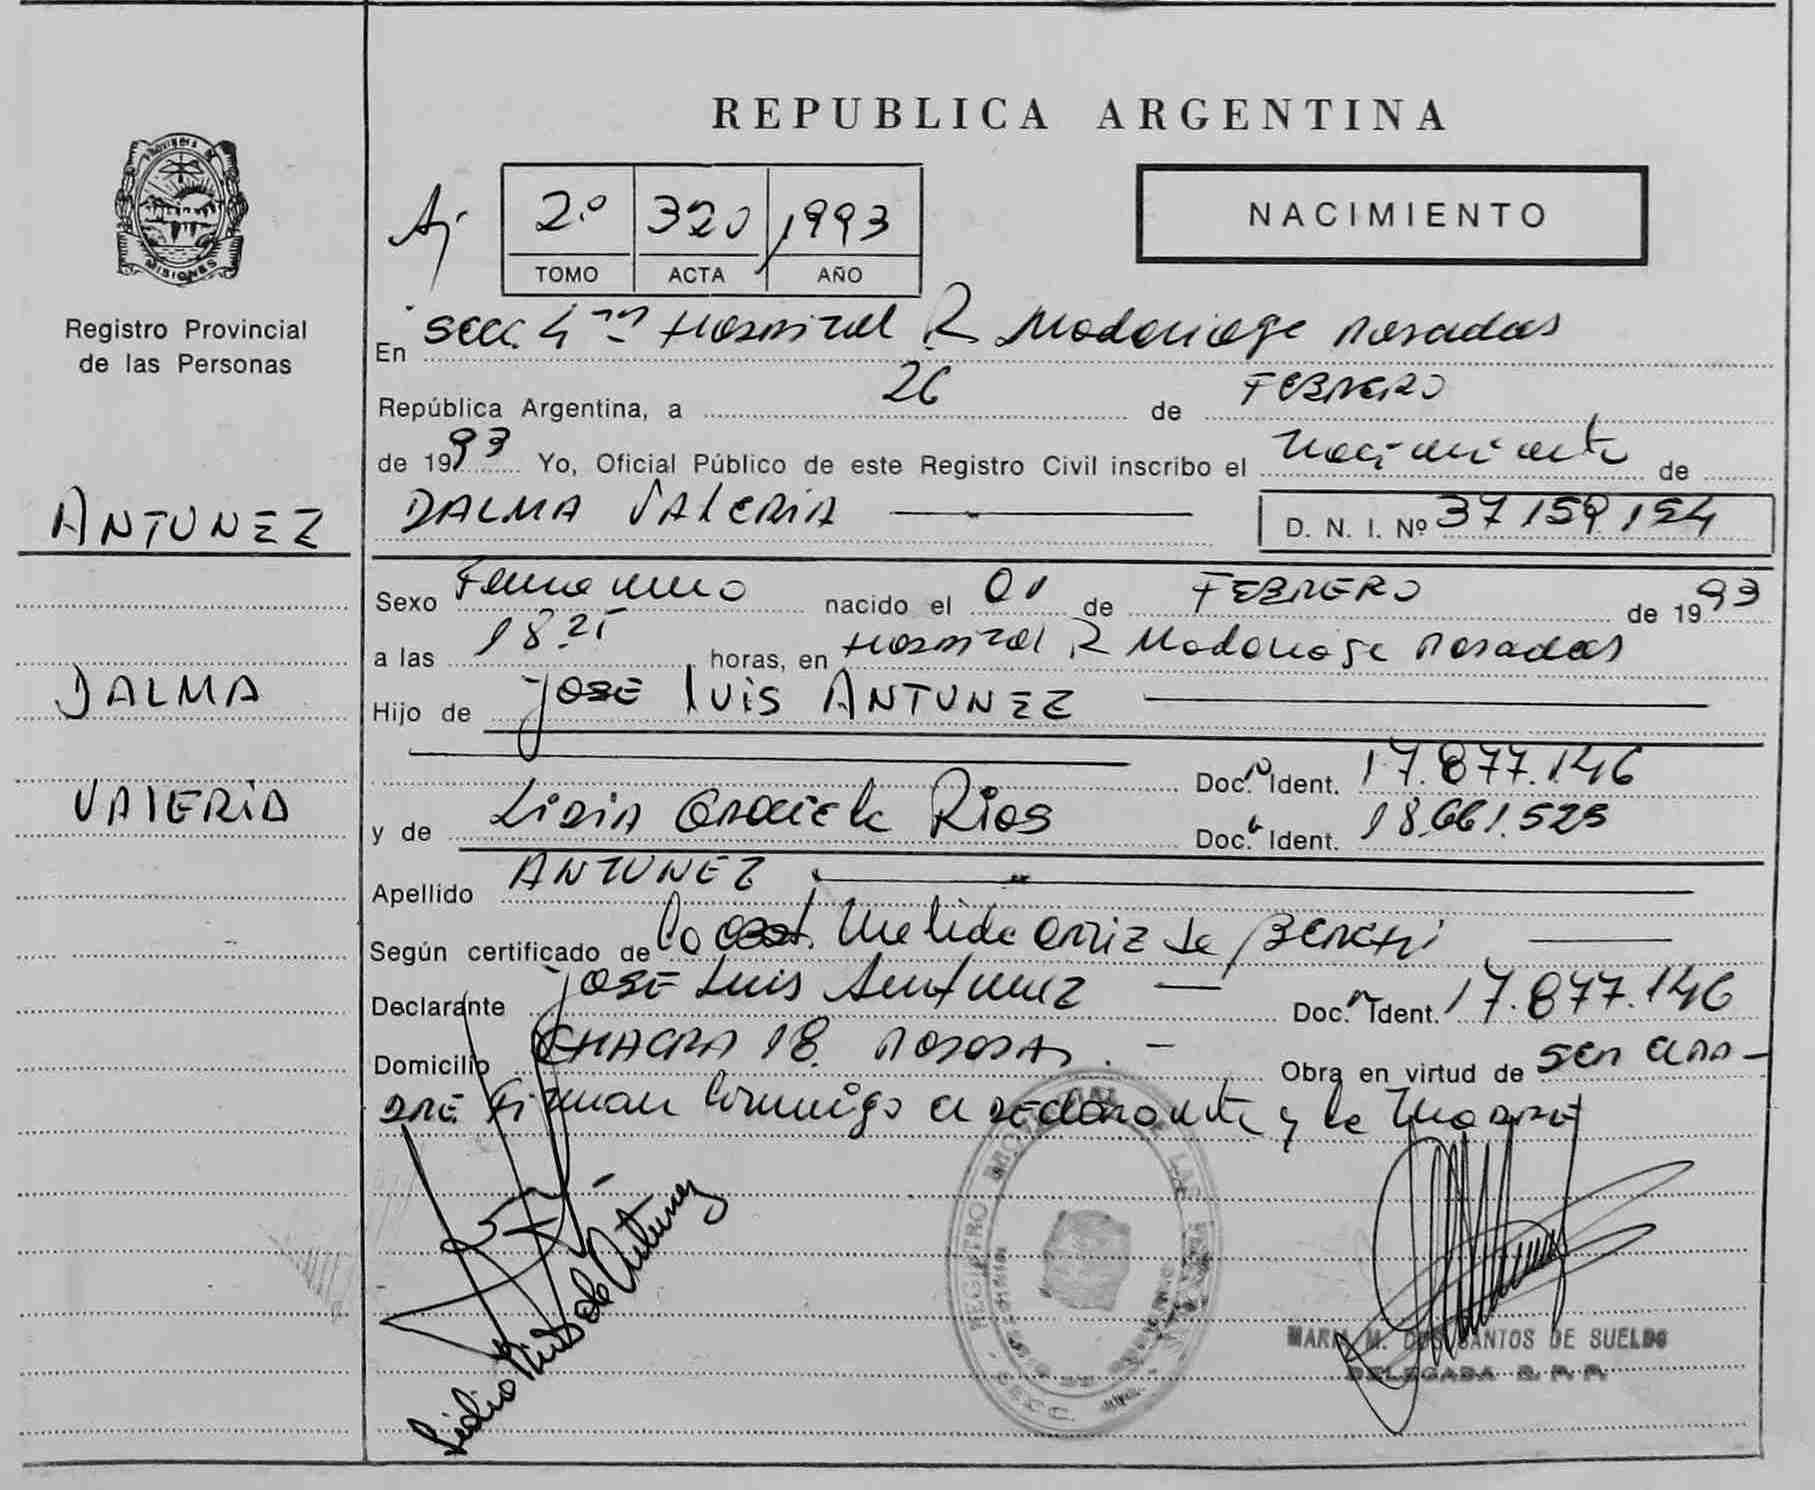 REPUBLICA ARGENTINA
PROVINCIA DE MISIONES
Registro Provincial
de las Personas
ANTUNEZ
DALMA
VALERIA
2º 320 1993
TOMO ACTA AÑO
NACIMIENTO
En Secc. 4ta Hospital R Madariaga Posadas
República Argentina, a 26 de FEBRERO
de 1993 Yo, Oficial Público de este Registro Civil inscribo el Nacimiento de
DALMA VALERIA D. N. I. Nº 37 159 154
Sexo Femenino nacido el 01 de FEBRERO de 1993
a las 18 25 horas, en Hospital R Madariaga Posadas
Hijo de JOSE LUIS ANTUNEZ
Doc. Ident. 17.877.146
y de LIDIA Graciela Rios Doc. Ident. 18.661.525
Apellido ANTUNEZ
Según certificado de la obst. Melida Ortiz de
Declarante JOSE Luis Antunez Doc. Ident. 17.877.146
Domicilio CHACRA 18. POSADAS. Obra en virtud de SER el PA-
DRE. Firman conmigo el DEclarante y la MADRE
Lidia Rios de Antunez
REGISTRO PROVINCIAL DE LAS PERSONAS
MARIA M. DOS SANTOS DE SUELDO
DELEGADA R. P. P.